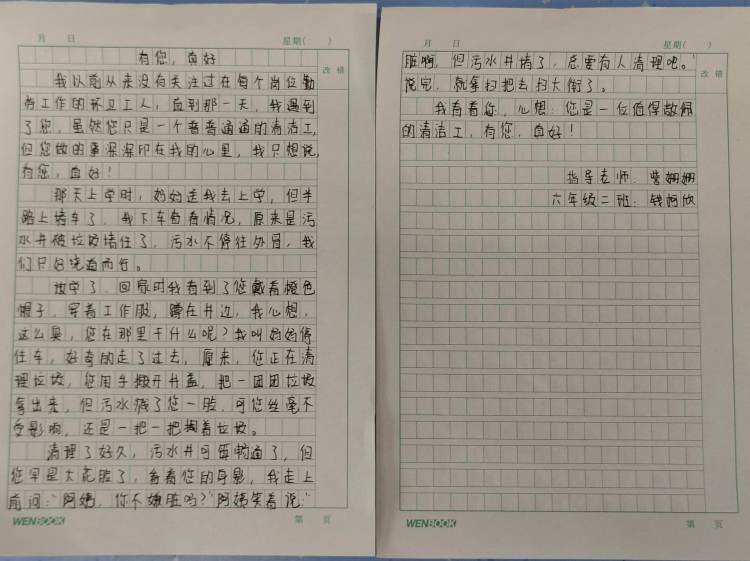 月 日 星期( )
有您，真好
改错
我以前从来没有关注过在每个岗位勤
劳工作的环卫工人，直到那一天，我遇到
了您，虽然您只是一个普普通通的清洁工，
但您做的事深深印在我的心里，我只想说，
有您，真好！
那天上学时，妈妈送我去上学，但半
路上堵车了，我下车查看情况，原来是污
水井被垃圾堵住了，污水不停往外冒，我
们只好绕道而行。
放学了，回家时我看到了您戴着橙色
帽子，穿着工作服，蹲在井边，我心想，
这么臭，您在那里干什么呢？我叫妈妈停
住车，好奇的走了过去，原来，您正在清
理垃圾，您用手搬开井盖，把一团团垃圾
拿出来，但污水溅了您一脸，可您丝毫不
受影响，还是一把一把掏着垃圾。
清理了好久，污水井可算畅通了，但
您早是大花脸了，看着您的身影，我走上
前问：“阿姨，你不嫌脏吗？”阿姨笑着说：“
WENBOOK 第 页
月 日 星期( )
改错
脏啊，但污水井堵了，总要有人清理吧。”
说完，就拿扫把去扫大街了。
我看着您，心想：您是一位值得敬佩
的清洁工，有您，真好！
指导老师：樊姗姗
六年级二班：钱阿欣
WENBOOK 第 页